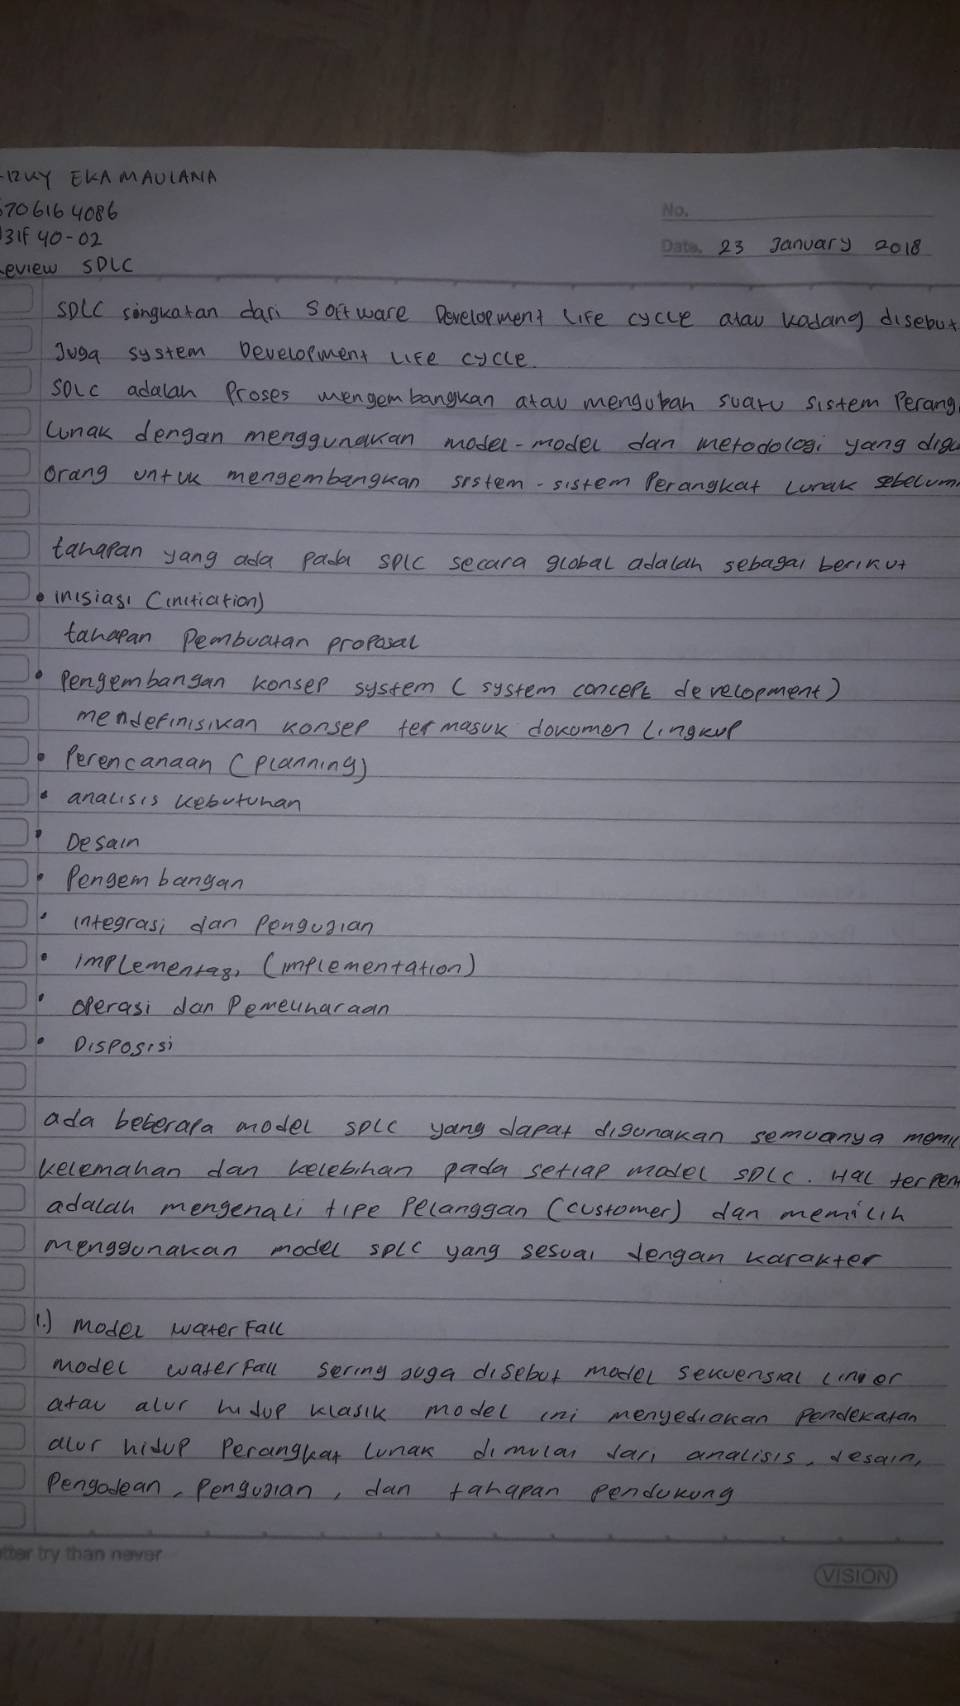 EKA MAULANA
6706164086
31F 40-02
eview SDLC
No.
Date. 23 January 2018
SDLC singkatan dari Software Development Life cycle atau kadang disebut
Juga system Development Life cycle.
SDLC adalah Proses mengembangkan atau mengubah suatu sistem Perang
Lunak dengan menggunakan model-model dan metodologi yang digu
orang untuk mengembangkan sistem-sistem Perangkat Lunak sebelum
tahapan yang ada pada SDLC secara global adalah sebagai berikut
• inisiasi (initiation)
tahapan Pembuatan proposal
• Pengembangan konsep system (system concept development)
mendefinisikan konsep termasuk dokumen Lingkup
• Perencanaan (Planning)
• analisis kebutuhan
• Desain
• Pengembangan
• integrasi dan Pengujian
• implementasi (implementation)
• operasi dan Pemeliharaan
• Disposisi
ada beberapa model SDLC yang dapat digunakan semuanya memi
kelemahan dan kelebihan pada setiap model SDLC. Hal terpen
adalah mengenali tipe Pelanggan (customer) dan memilih
menggunakan model SDLC yang sesuai dengan karakter
1.) Model waterfall
model waterfall sering juga disebut model sekuensial linier
atau alur hidup klasik model ini menyediakan Pendekatan
alur hidup Perangkat Lunak dimulai dari analisis, desain,
Pengodean, Pengujian, dan tahapan pendukung
try than never
VISION